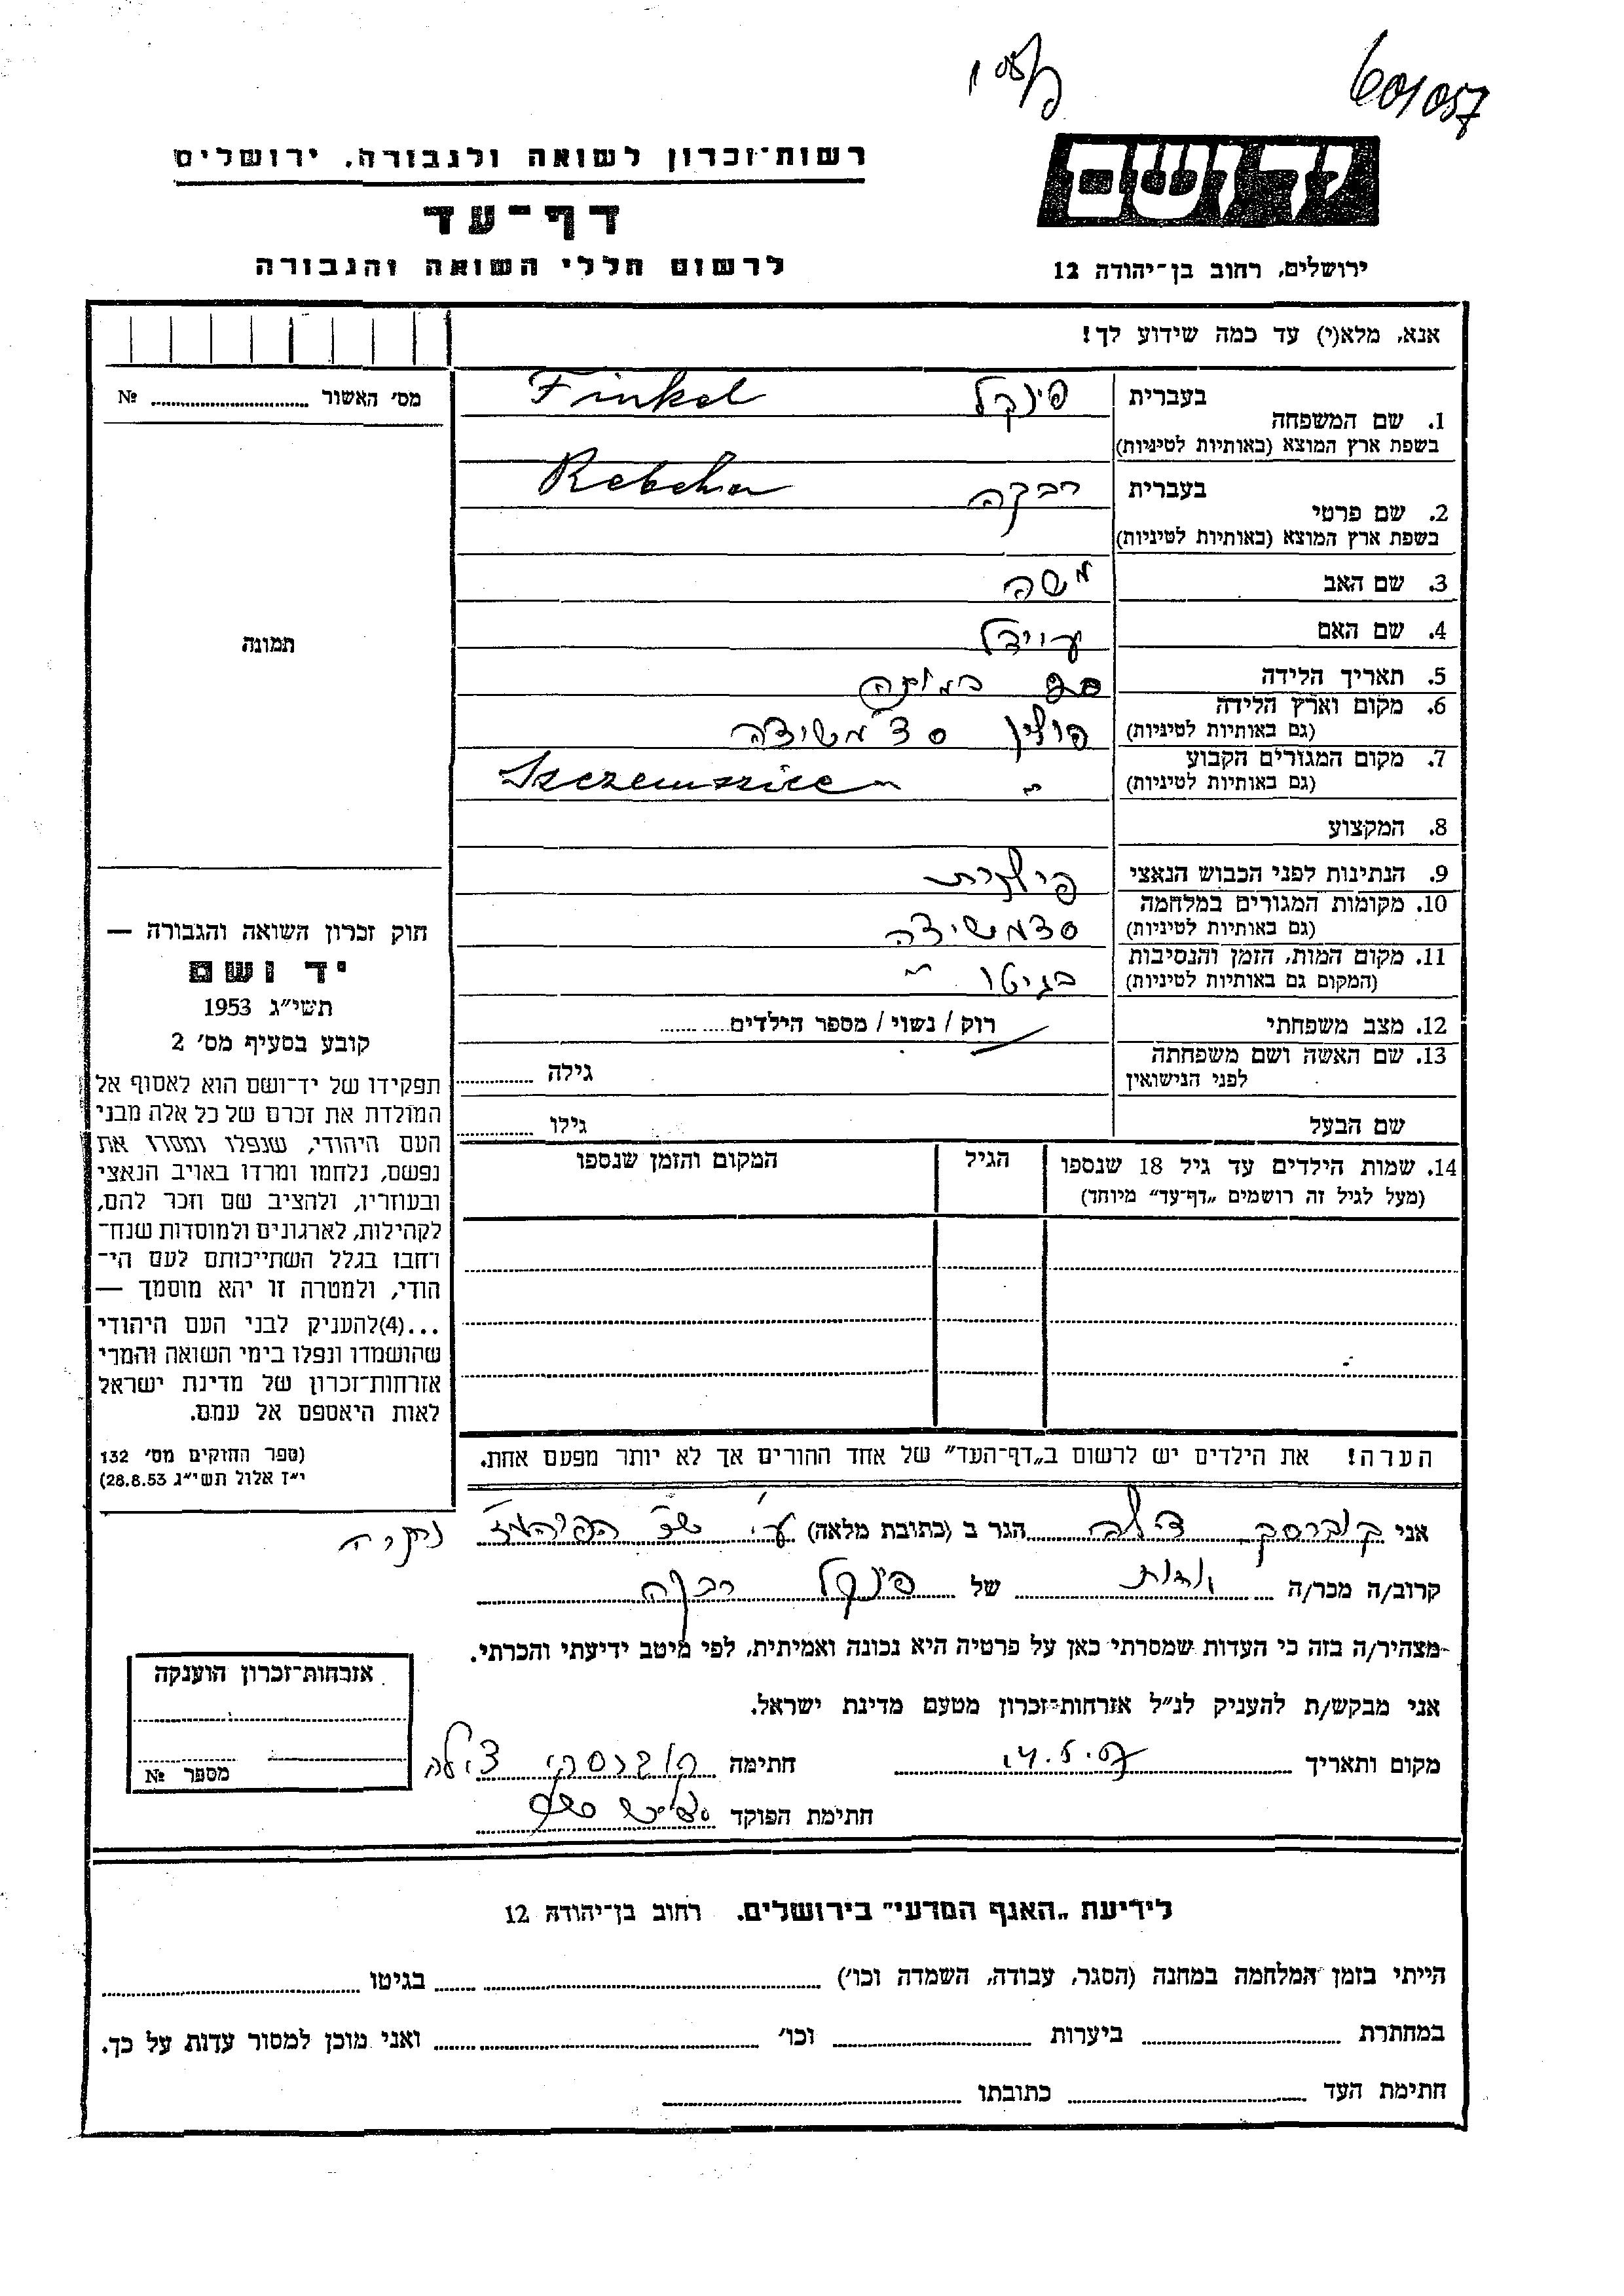 601057
רשות־זכרון לשואה ולגבורה, ירושלים
דף־עד
לרשום חללי השואה והגבורה
ידושם
ירושלים, רחוב בן־יהודה 12
אנא, מלא(י) עד כמה שידוע לך!
מס׳ האשור № ....................
תמונה
1. שם המשפחה בעברית פינקל Finkel
בשפת ארץ המוצא (באותיות לטיניות)
2. שם פרטי בעברית רבקה Rebeka
בשפת ארץ המוצא (באותיות לטיניות)
3. שם האב משה
4. שם האם
5. תאריך הלידה
6. מקום וארץ הלידה פולין
(גם באותיות לטיניות)
7. מקום המגורים הקבוע " Szczemszice
(גם באותיות לטיניות)
8. המקצוע
9. הנתינות לפני הכבוש הנאצי פולנית
10. מקומות המגורים במלחמה
(גם באותיות לטיניות)
11. מקום המות, הזמן והנסיבות בגיטו "
(המקום גם באותיות לטיניות)
12. מצב משפחתי רוק / נשוי / מספר הילדים..........
13. שם האשה ושם משפחתה גילה ..........
לפני הנישואין
שם הבעל גילו ..........
14. שמות הילדים עד גיל 18 שנספו הגיל המקום והזמן שנספו
(מעל לגיל זה רושמים „דף־עד" מיוחד)
חוק זכרון השואה והגבורה —
יד ושם
תשי״ג 1953
קובע בסעיף מס׳ 2
תפקידו של יד־ושם הוא לאסוף אל
המולדת את זכרם של כל אלה מבני
העם היהודי, שנפלו ומסרו את
נפשם, נלחמו ומרדו באויב הנאצי
ובעוזריו, ולהציב שם וזכר להם,
לקהילות, לארגונים ולמוסדות שנח־
רחבו בגלל השתייכותם לעם הי־
הודי, ולמטרה זו יהא מוסמך —
...(4)להעניק לבני העם היהודי
שהושמדו ונפלו בימי השואה והמרי
אזרחות־זכרון של מדינת ישראל
לאות היאספם אל עמם.
(ספר החזקים מס׳ 132
י״ז אלול תשי״ג 28.8.53)
הערה! את הילדים יש לרשום ב„דף־העד" של אחד ההורים אך לא יותר מפעם אחת.
אני הגר ב (כתובת מלאה)
קרוב/ה מכר/ה אחות של פינקל רבקה
מצהיר/ה בזה כי העדות שמסרתי כאן על פרטיה היא נכונה ואמיתית, לפי מיטב ידיעתי והכרתי.
אני מבקש/ת להעניק לנ״ל אזרחות־זכרון מטעם מדינת ישראל.
מקום ותאריך חתימה צילה
חתימת הפוקד
אזרחות־זכרון הוענקה
מספר №
לידיעת „האגף המדעי" בירושלים. רחוב בן־יהודה 12
הייתי בזמן המלחמה במחנה (הסגר, עבודה, השמדה וכו׳) בגיטו
במחתרת ביערות וכו׳ ואני מוכן למסור עדות על כך.
חתימת העד כתובתו